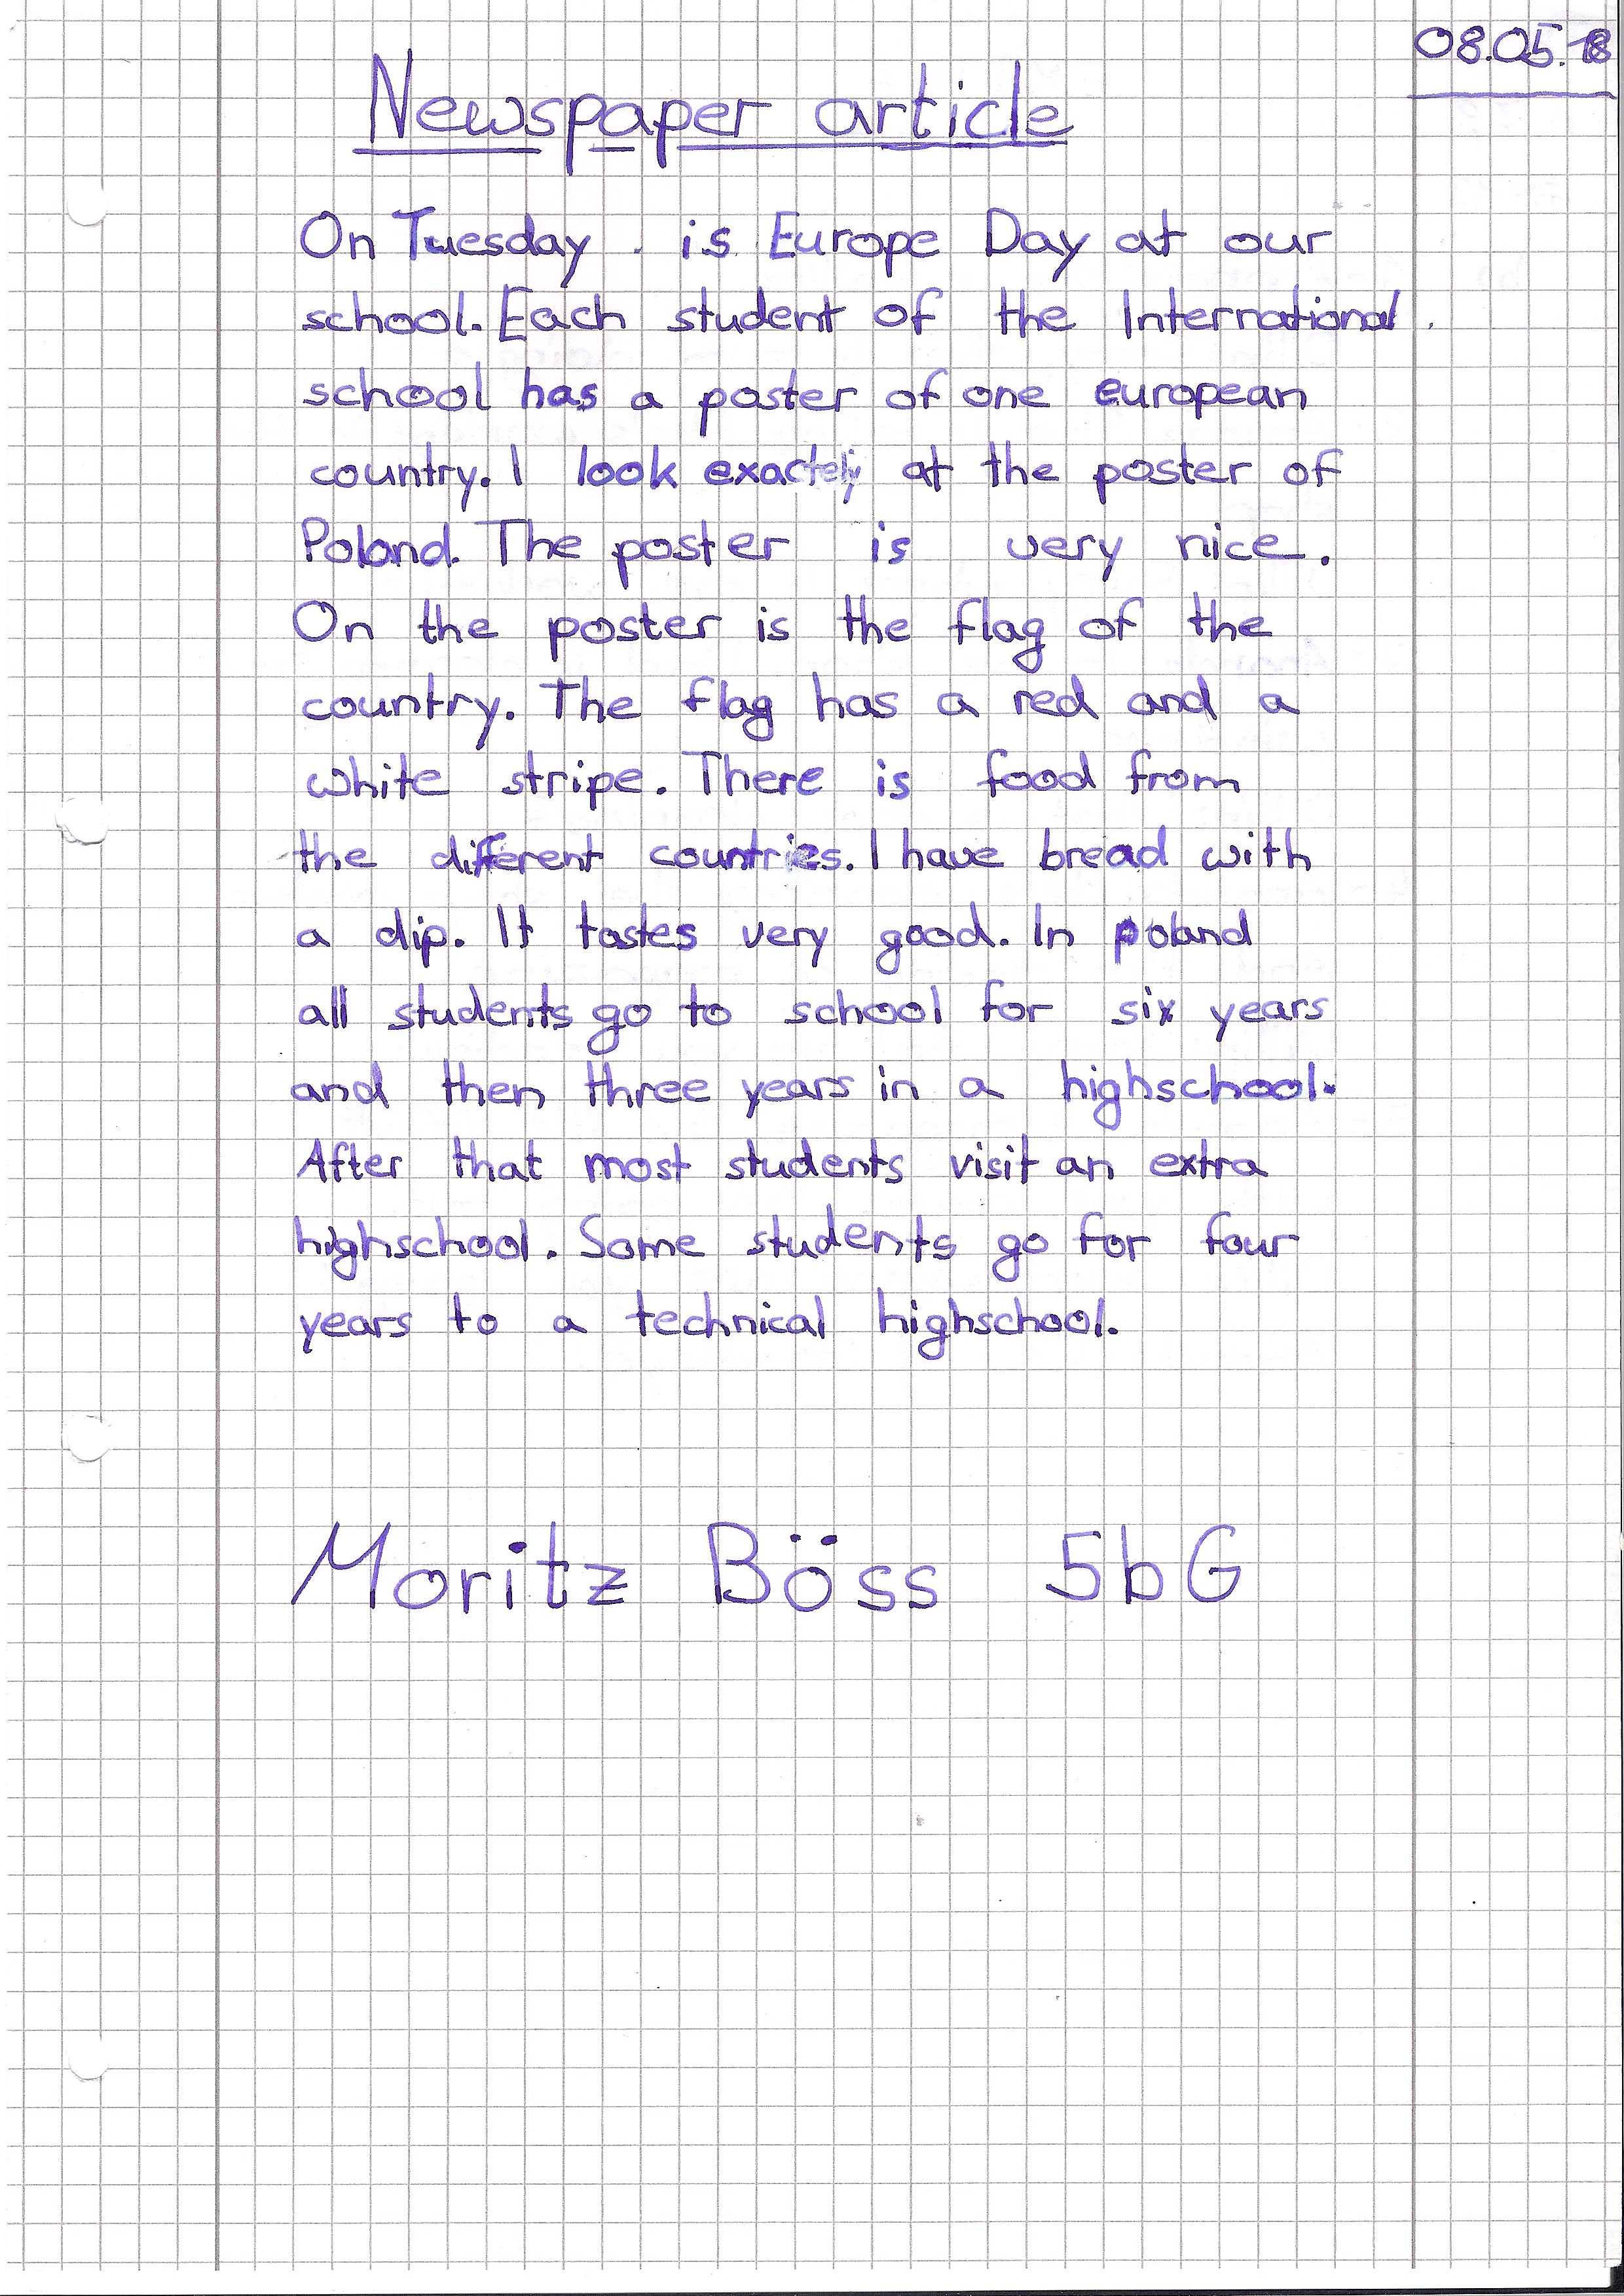 08.05.18
Newspaper article
On Tuesday . is Europe Day at our
school. Each student of the International
school has a poster of one european
country. I look exactely at the poster of
Poland. The poster is very nice.
On the poster is the flag of the
country. The flag has a red and a
white stripe. There is food from
the different countries. I have bread with
a dip. It tastes very good. In poland
all students go to school for six years
and then three years in a highschool.
After that most students visit an extra
highschool. Some students go for four
years to a technical highschool.
Moritz Böss 5bG